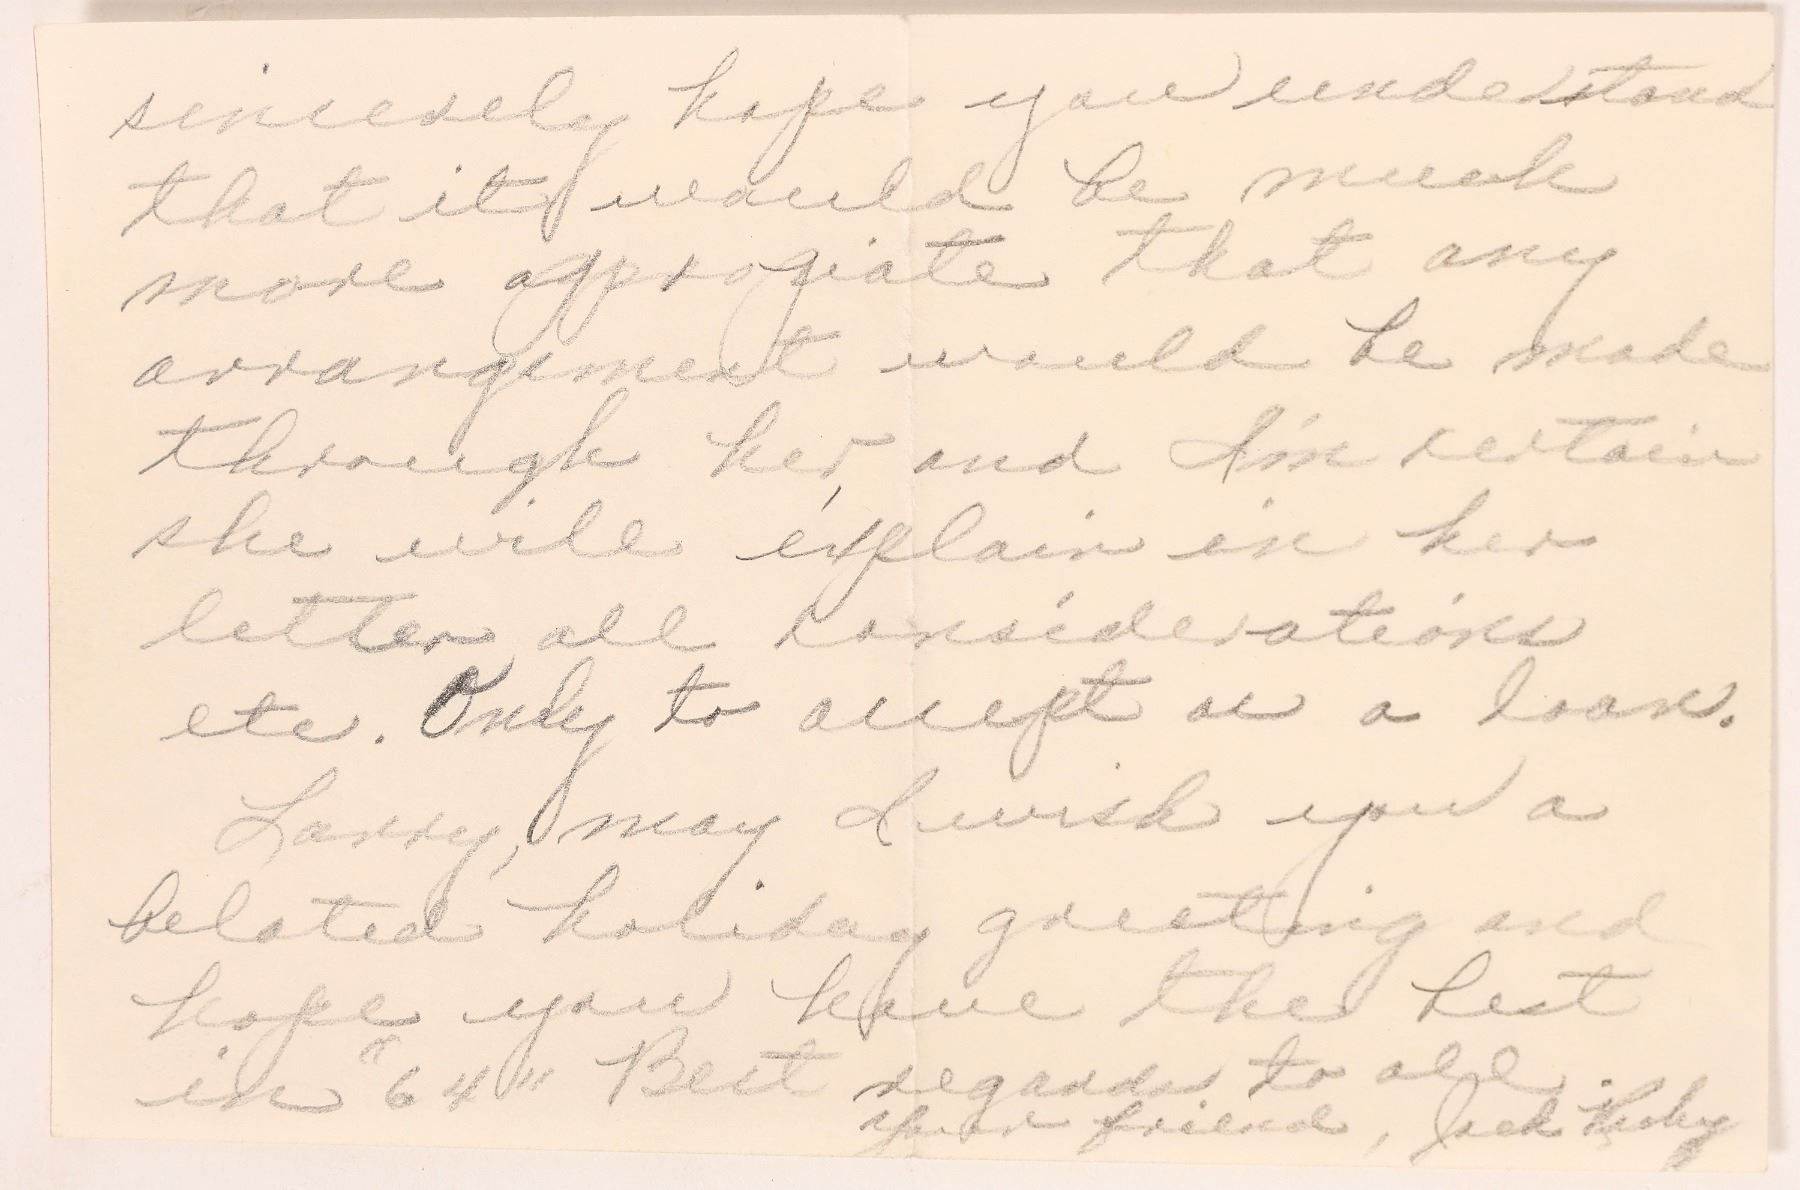 sincerely hope you understand
that it would be much
more appropiate that any
arrangement would be made
through her, and I'm certain
she will explain in her
letter all considerations
etc. Only to accept as a loan.
Larry, may I wish you a
belated holiday greeting and
hope you have the best
in "64" Best regards to all.
Your friend, Jack Ruby